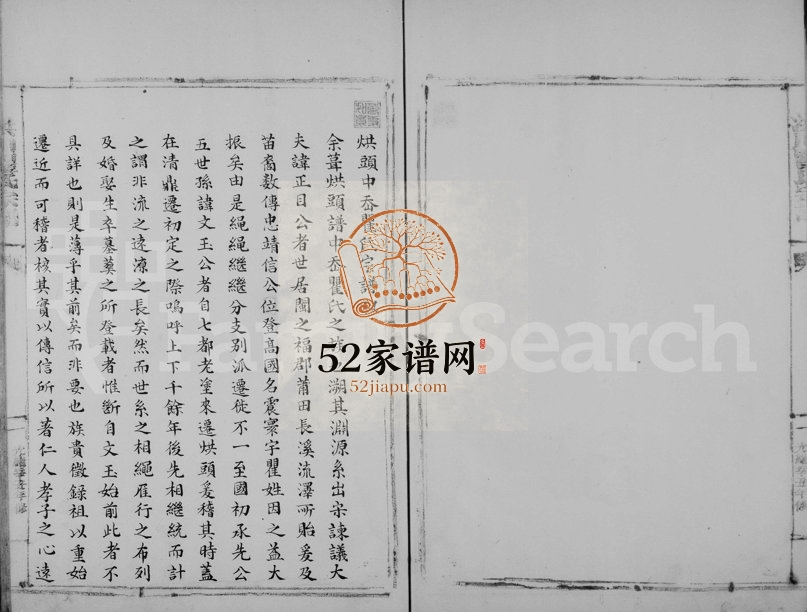 烘頭中岙瞿氏宗譜
余葺烘頭譜中岙瞿氏之溯其淵源系出宋諫議大
夫諱正目公者世居閩之福郡莆田長溪流澤所貽爰及
苗裔數傳忠靖信公位登高國名震寰宇瞿姓因之益大
振矣由是繩繩繼繼分支別派遷徙不一至國初承先公
五世孫諱文玉公者自七都老塗來遷烘頭爰稽其時蓋
在清鼎遷初定之際嗚呼上下千餘年後先相繼統而計
之謂非流之遠源之長矣然而世系之相繩雁行之布列
及婚娶生卒墓奠之所登載者惟斷自文玉始前此者不
具詳也則是薄乎其前矣而非要也族貴徵錄祖以重始
遷近而可稽者核其實以傳信所以著仁人孝子之心遠
FamilySearch
52家谱网
52jiapu.com